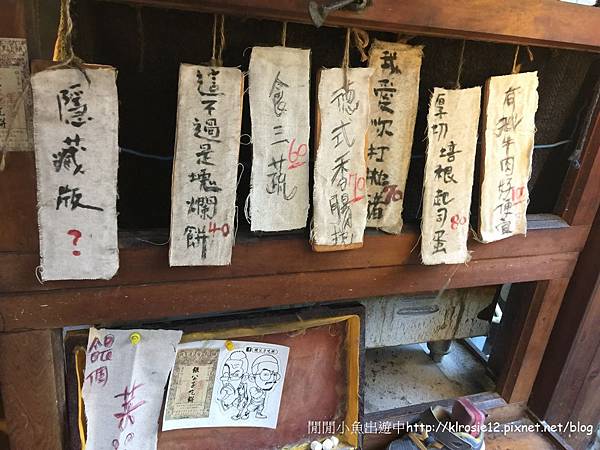 隱藏版 ?
這不過是塊爛餅 40
食三蔬 60
德式香腸 70
我愛吹打豬 70
厚切培根起司蛋 80
有乳牛肉好便宜
餡個菜 8
閒閒小魚出遊中http://klrosie12.pixnet.net/blog